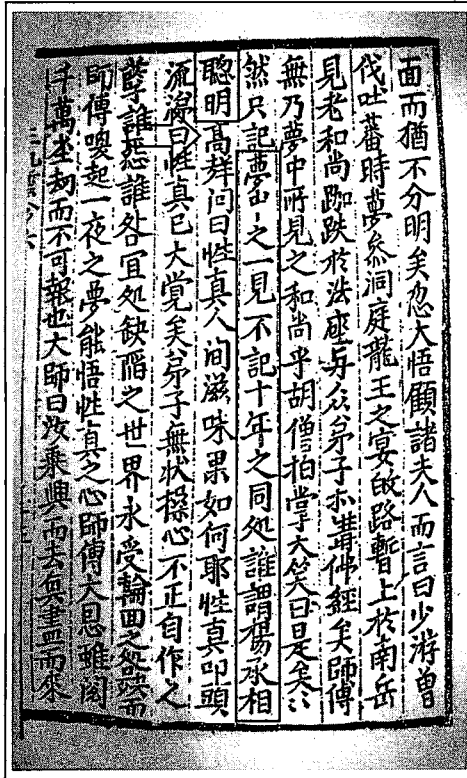 面而猶不分明矣忽大悟顧諸夫人而言曰少游曾
伐吐蕃時夢參洞庭龍王之宴皈路暫上於南岳
見老和尚跏趺於法座与众弟子亦講佛經矣師傅
無乃夢中所見之和尚乎胡僧拍掌大笑曰是矣〻
然只記夢中之一見不記十年之同処誰謂楊丞相
聰明高声問曰性真人间滋味果如何耶性真叩頭
流淚曰性真已大覺矣弟子無狀操心不正自作之
孽誰怨誰咎宜処缺陷之世界永受輪回之処殃而
師傅喚起一夜之夢能悟性真之心師傅大恩雖閱
千萬塵劫而不可報也大師曰汝乘興而去興盡而來